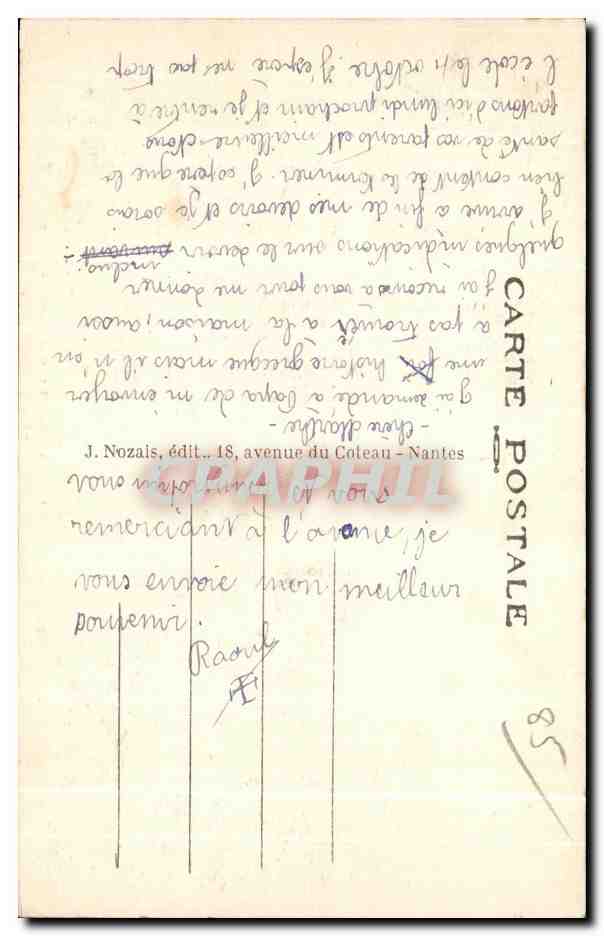 - Chère Marthe -
j'ai demandé à Papa de m'envoyer
une histoire grecque mais il n'en
a pas trouvé à la maison, aussi
j'ai recours à vous pour me donner
quelques indications sur le devoir
inclus. -
j'arrive à fin de mes devoirs et je serais
bien content de les terminer. j'espère que la
santé de vos parents est meilleure. Nous
partons d'ici lundi prochain et je rentre à
l'école le 11 octobre. j'espère ne pas trop
vous importuner et vous
remerciant à l'avance, je
vous envoie mon meilleur
souvenir.
Raoul
J. Nozais, édit.. 18, avenue du Coteau - Nantes
CARTE POSTALE
CPAPHIL
85